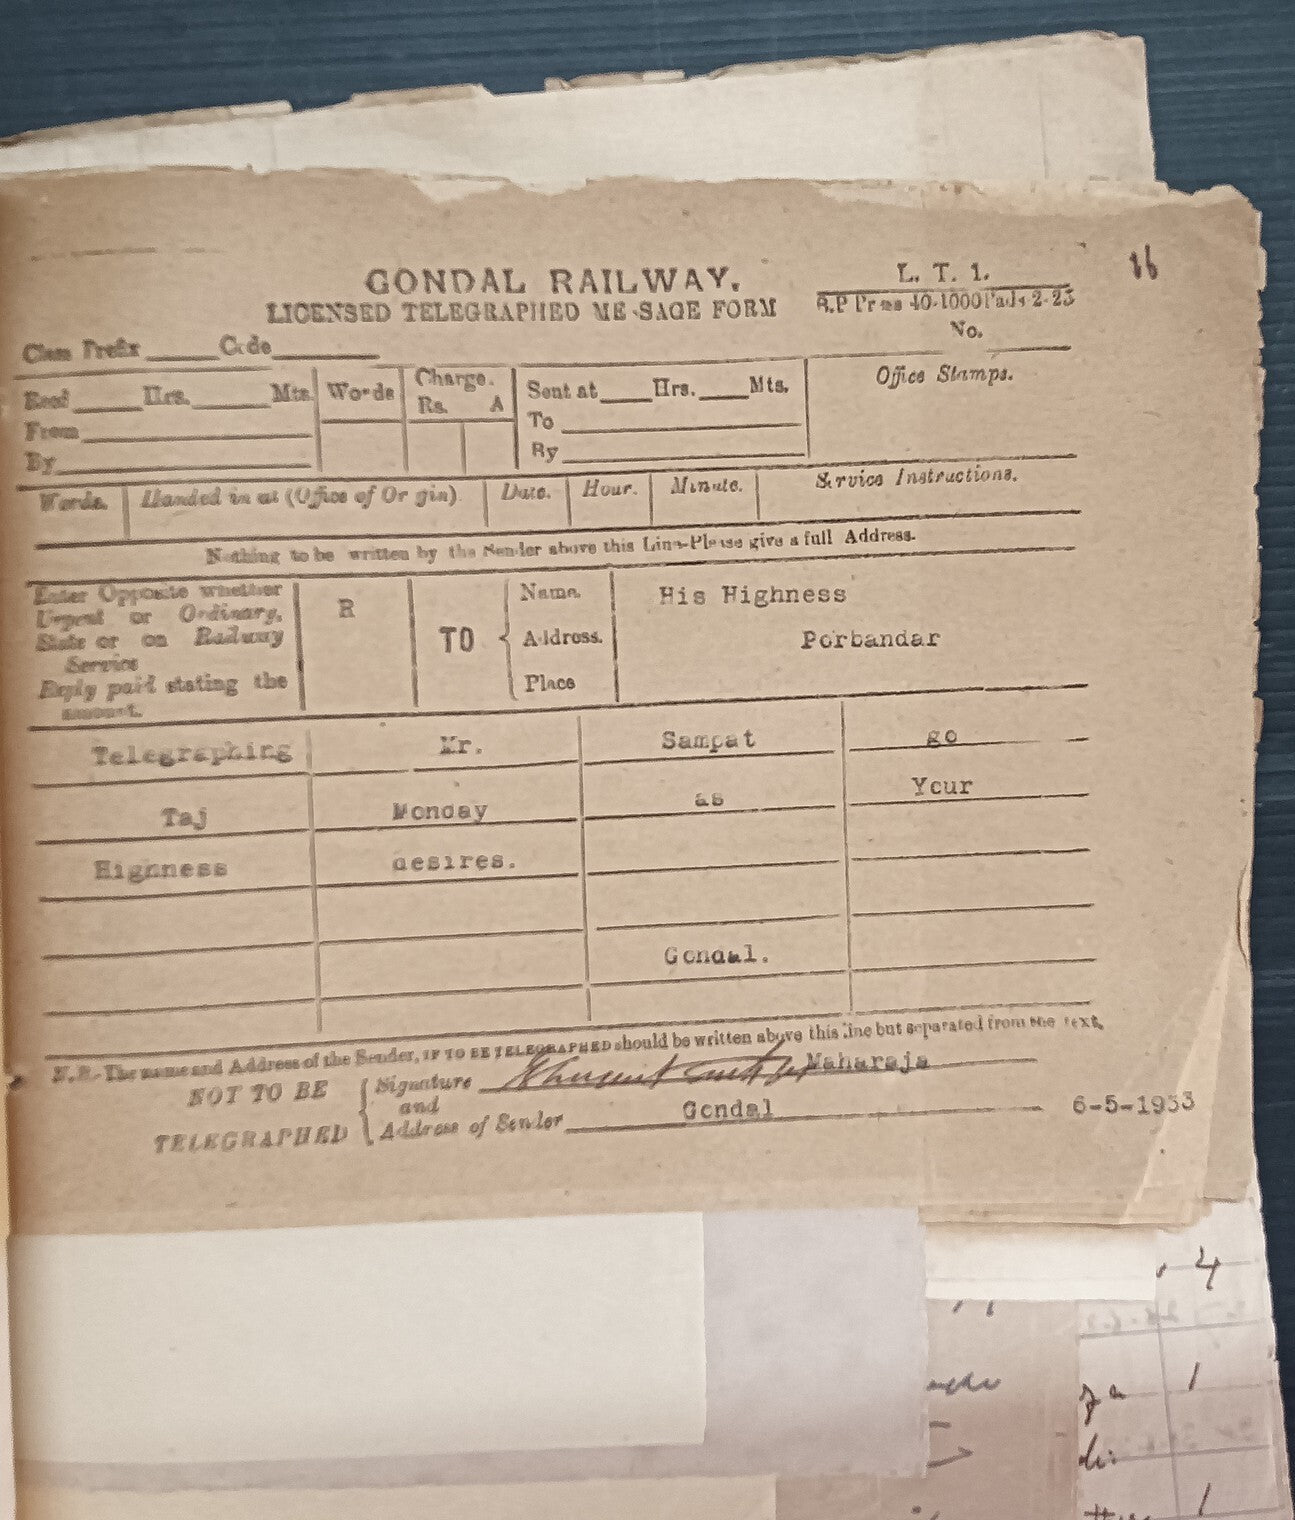 16
GONDAL RAILWAY.
L. T. 1.
LICENSED TELEGRAPHED ME SAGE FORM
G.P Pr ss 40-1000 Pads 2-23
No.
Class Prefix Code
Recd Hrs. Mts. Words Charge. Sent at Hrs. Mts. Office Stamps.
Rs. A
From To
By By
Words. Handed in at (Office of Or gin) Date. Hour. Minute. Service Instructions.
Nothing to be written by the Sender above this Line-Please give a full Address.
Enter Opposite whether
Urgent or Ordinary,
State or on Railway
Service
Reply paid stating the
amount.
R
TO
Name
Address.
Place
His Highness
Porbandar
Telegraphing Mr. Sampat go
Taj Monday as Your
Highness desires.
Gondal.
N.B.- The name and Address of the Sender, IF TO BE TELEGRAPHED should be written above this line but separated from the text,
NOT TO BE
TELEGRAPHED
Signature Maharaja
and
Address of Sender Gondal
6-5-1933
4
1
1